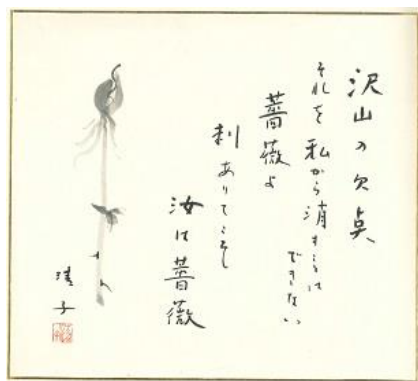 沢山の欠点
それを私から消すことは
できない
薔薇よ
刺ありてこそ
汝は薔薇
清子